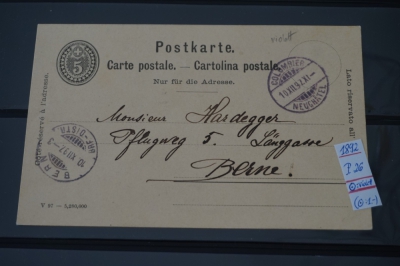 violett
5
Postkarte.
Carte postale. — Cartolina postale.
Nur für die Adresse.
Côté réservé à l'adresse.
Lato riservato all'
COLOMBIER
NEUCHATEL
Monsieur Hardegger
Pflugweg 5. Länggasse
Berne.
BERN
1892
P 26
V 92 — 3,250,000